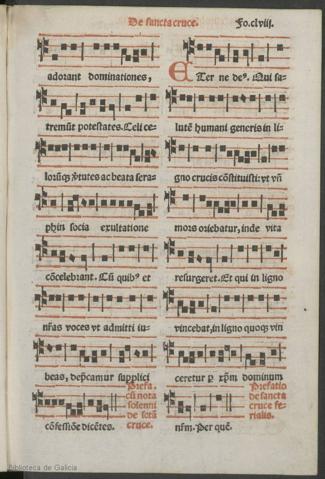 De sancta cruce. Fo.clviij.
adorant dominationes,
tremūt potestates. Celi ce-
lorūqꝫ v̓tutes ac beata sera-
phin socia exultatione
cōcelebrant. Cū quibꝰ et
nr̄as voces vt admitti iu-
beas, dep̄camur supplici
cōfessiōe dicētes.
Prefa.
cū nota
solenni
de scta
cruce.
ETer ne deꝰ. Qui sa-
lutē humani generis in li-
gno crucis cōstituisti: vt vn̄
mors oriebatur, inde vita
resurgeret. Et qui in ligno
vincebat, in ligno quoqꝫ vin
ceretur ꝑ xp̄m dominum
nr̄m. Per quē.
Prefatio
de sancta
cruce fe-
rialis.
Biblioteca de Galicia